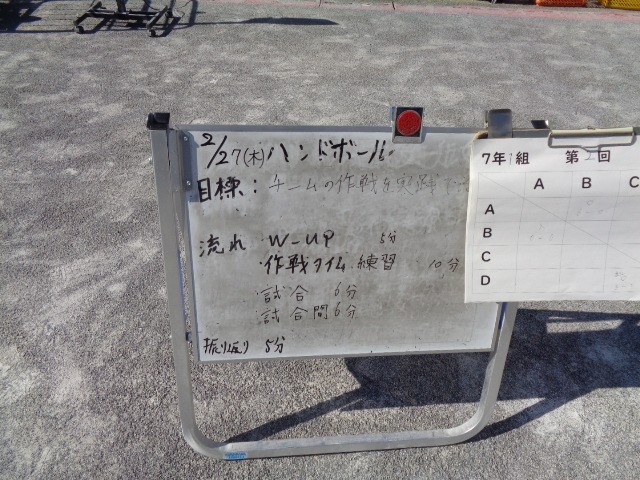 2/27(木)ハンドボール
目標:チームの作戦を実践
流れ ・W-UP 5分
・作戦タイム・練習 10分
・試合 6分
・試合間6分
振り返り 5分
7年1組 第 回
A B C
A
B
C
D